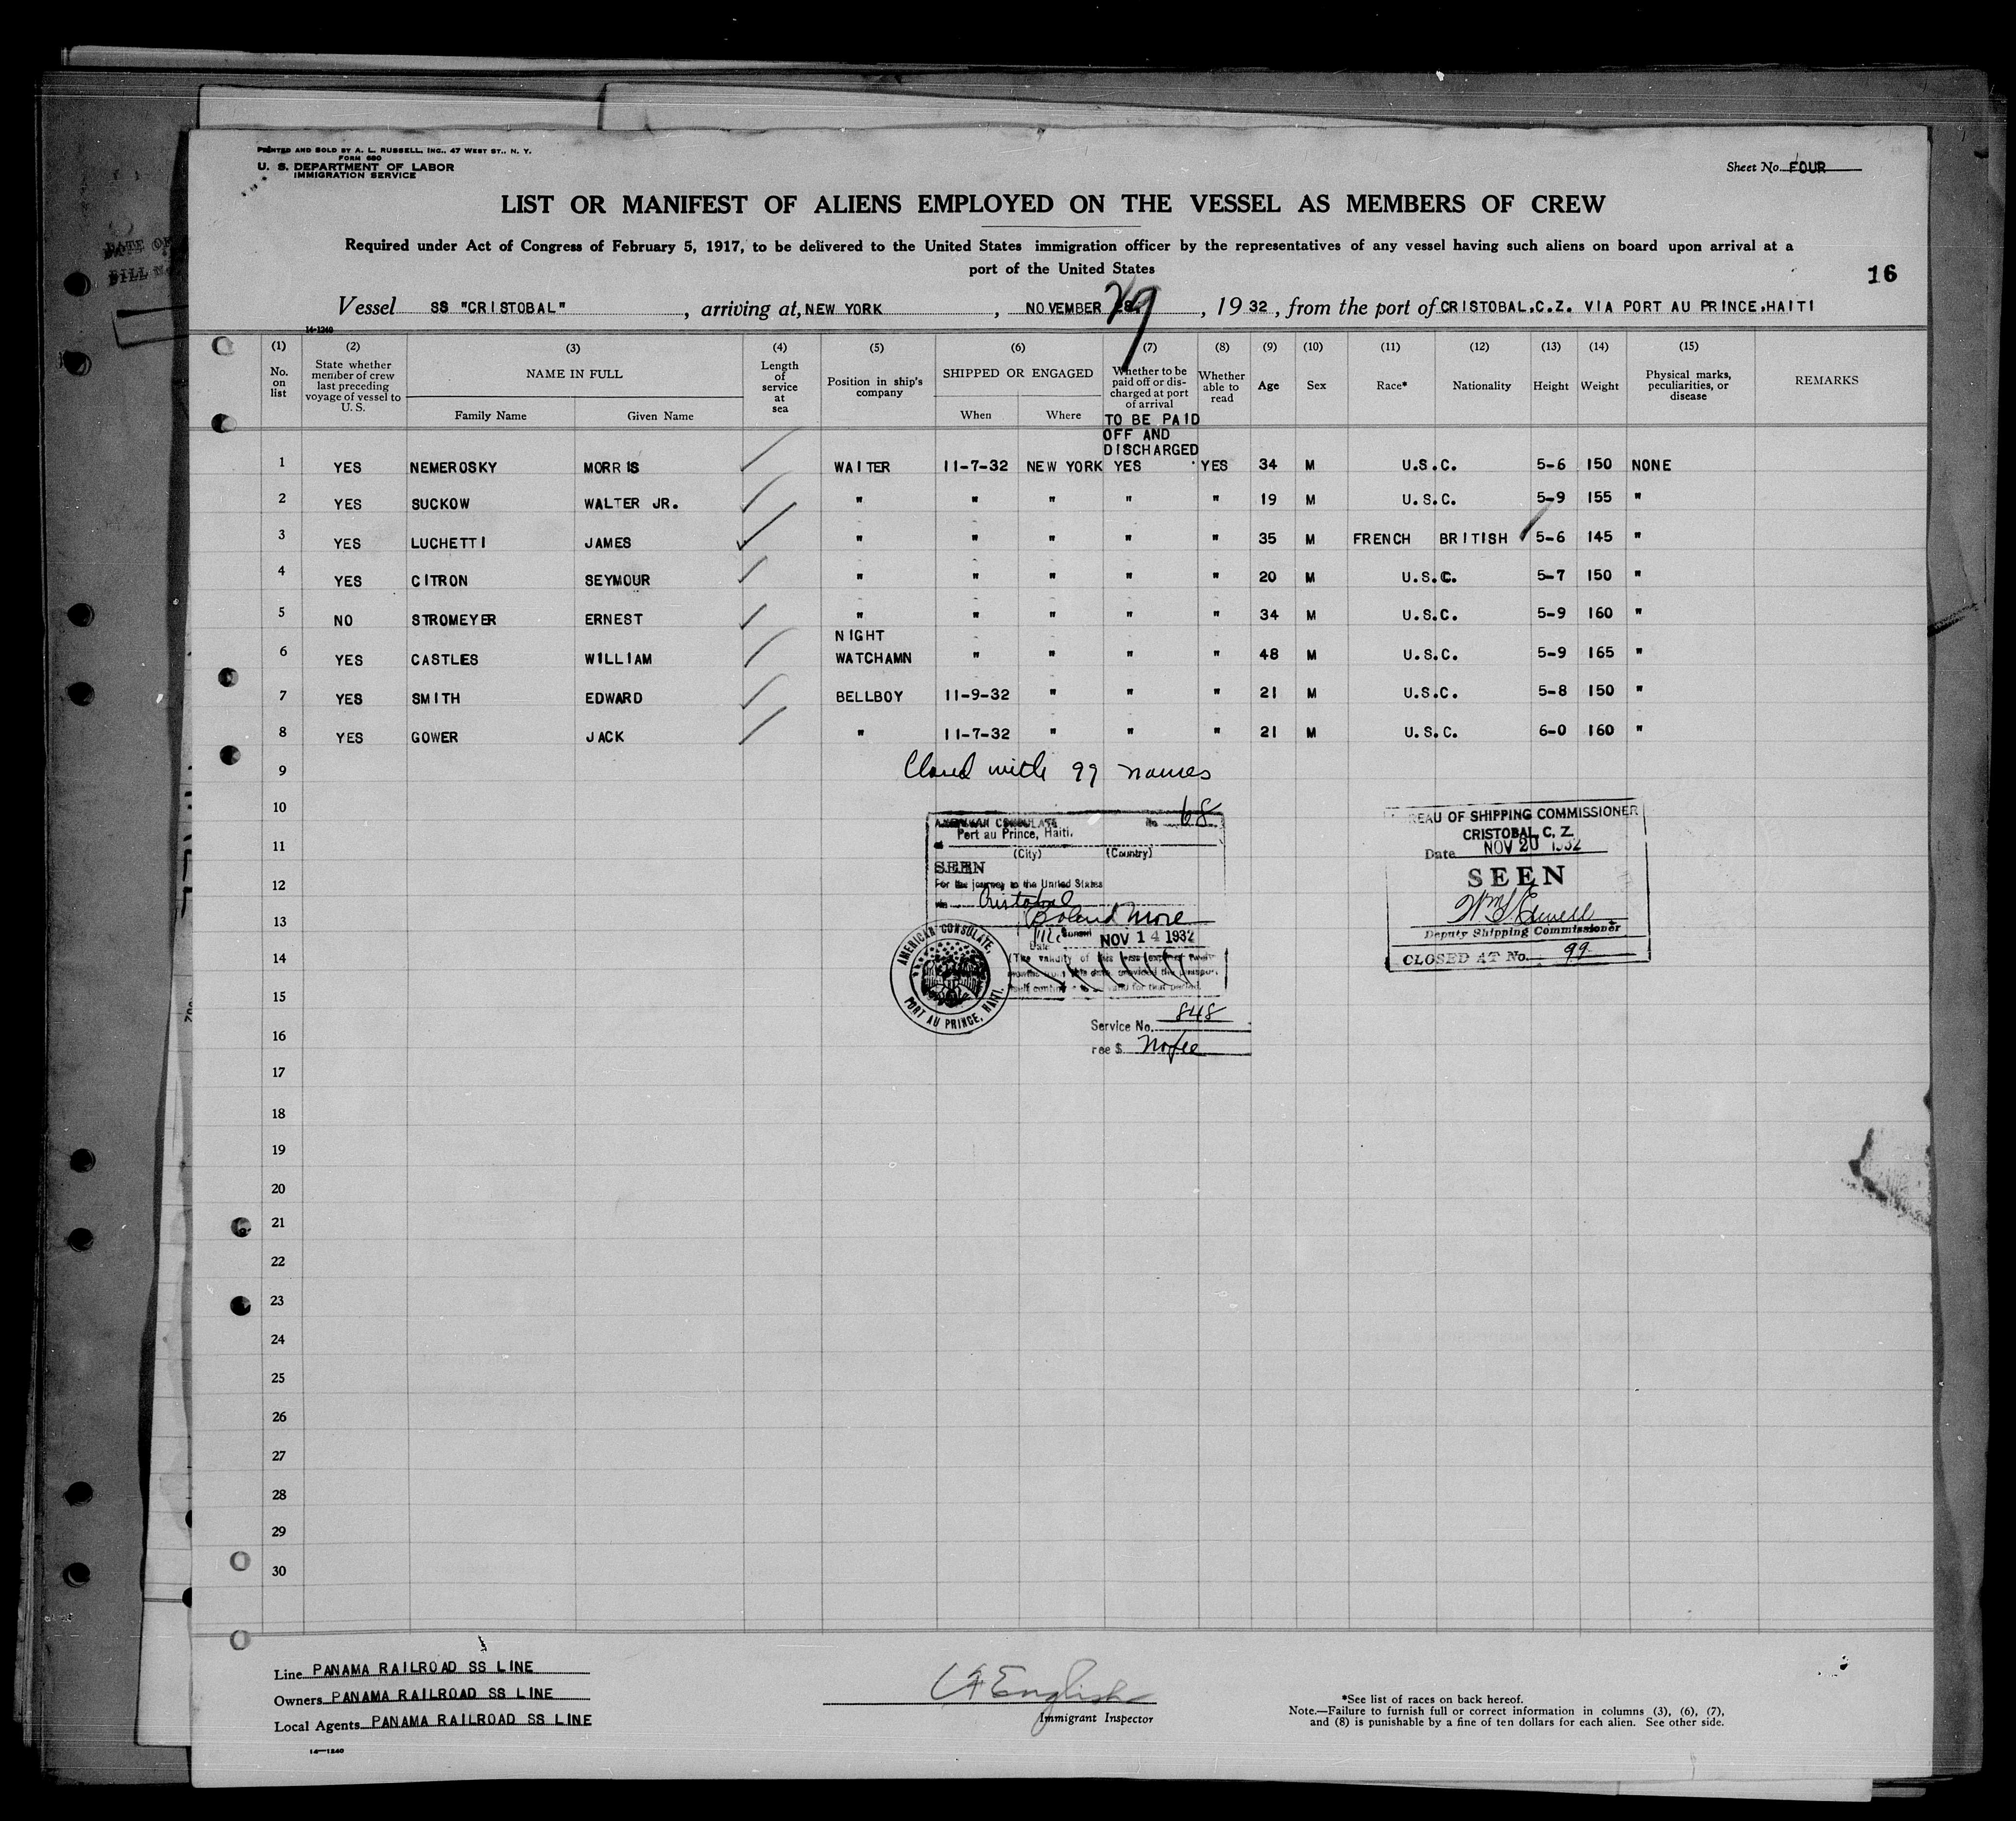 PRINTED AND SOLD BY A. L. RUSSELL, INC., 47 WEST ST., N. Y.
FORM 680
U. S. DEPARTMENT OF LABOR
IMMIGRATION SERVICE
Sheet No. FOUR
LIST OR MANIFEST OF ALIENS EMPLOYED ON THE VESSEL AS MEMBERS OF CREW
Required under Act of Congress of February 5, 1917, to be delivered to the United States immigration officer by the representatives of any vessel having such aliens on board upon arrival at a
port of the United States
16
Vessel SS "CRISTOBAL", arriving at, NEW YORK, NOVEMBER 28. 29, 1932, from the port of CRISTOBAL.C.Z. VIA PORT AU PRINCE.HAITI
14-1240
(1) (2) (3) (4) (5) (6) (7) (8) (9) (10) (11) (12) (13) (14) (15)
No. on list
State whether member of crew last preceding voyage of vessel to U. S.
NAME IN FULL
Family Name Given Name
Length of service at sea
Position in ship's company
SHIPPED OR ENGAGED
When Where
Whether to be paid off or discharged at port of arrival
Whether able to read
Age Sex Race* Nationality Height Weight
Physical marks, peculiarities, or disease
REMARKS
TO BE PAID
OFF AND
DISCHARGED
1 YES NEMEROSKY MORRIS WAITER 11-7-32 NEW YORK YES YES 34 M U.S.C. 5-6 150 NONE
2 YES SUCKOW WALTER JR. " " " " " 19 M U.S.C. 5-9 155 "
3 YES LUCHETTI JAMES " " " " " 35 M FRENCH BRITISH 5-6 145 "
4 YES CITRON SEYMOUR " " " " " 20 M U.S.C. 5-7 150 "
5 NO STROMEYER ERNEST " " " " " 34 M U.S.C. 5-9 160 "
NIGHT
6 YES CASTLES WILLIAM WATCHAMN " " " " 48 M U.S.C. 5-9 165 "
7 YES SMITH EDWARD BELLBOY 11-9-32 " " " 21 M U.S.C. 5-8 150 "
8 YES GOWER JACK " 11-7-32 " " " 21 M U.S.C. 6-0 160 "
9 Closed with 99 names
10
11
12
13
14
15
16
17
18
19
20
21
22
23
24
25
26
27
28
29
30
AMERICAN CONSULATE No 68
Port au Prince, Haiti.
(City) (Country)
SEEN
For the journey to the United States
via Cristobal
Vice Consul
Date NOV 14 1932
(The validity of this visa expires twelve
months from this date, provided the passport
itself continues to be valid for that period.
AMERICAN CONSULATE,
PORT AU PRINCE, HAITI.
Service No. 848
Fee $ No fee
BUREAU OF SHIPPING COMMISSIONER
CRISTOBAL, C. Z.
Date NOV 20 1932
SEEN
Deputy Shipping Commissioner
CLOSED AT No. 99
Line PANAMA RAILROAD SS LINE
Owners PANAMA RAILROAD SS LINE
Local Agents PANAMA RAILROAD SS LINE
14—1240
English
Immigrant Inspector
*See list of races on back hereof.
Note.—Failure to furnish full or correct information in columns (3), (6), (7),
and (8) is punishable by a fine of ten dollars for each alien. See other side.
DATE OF
BILL